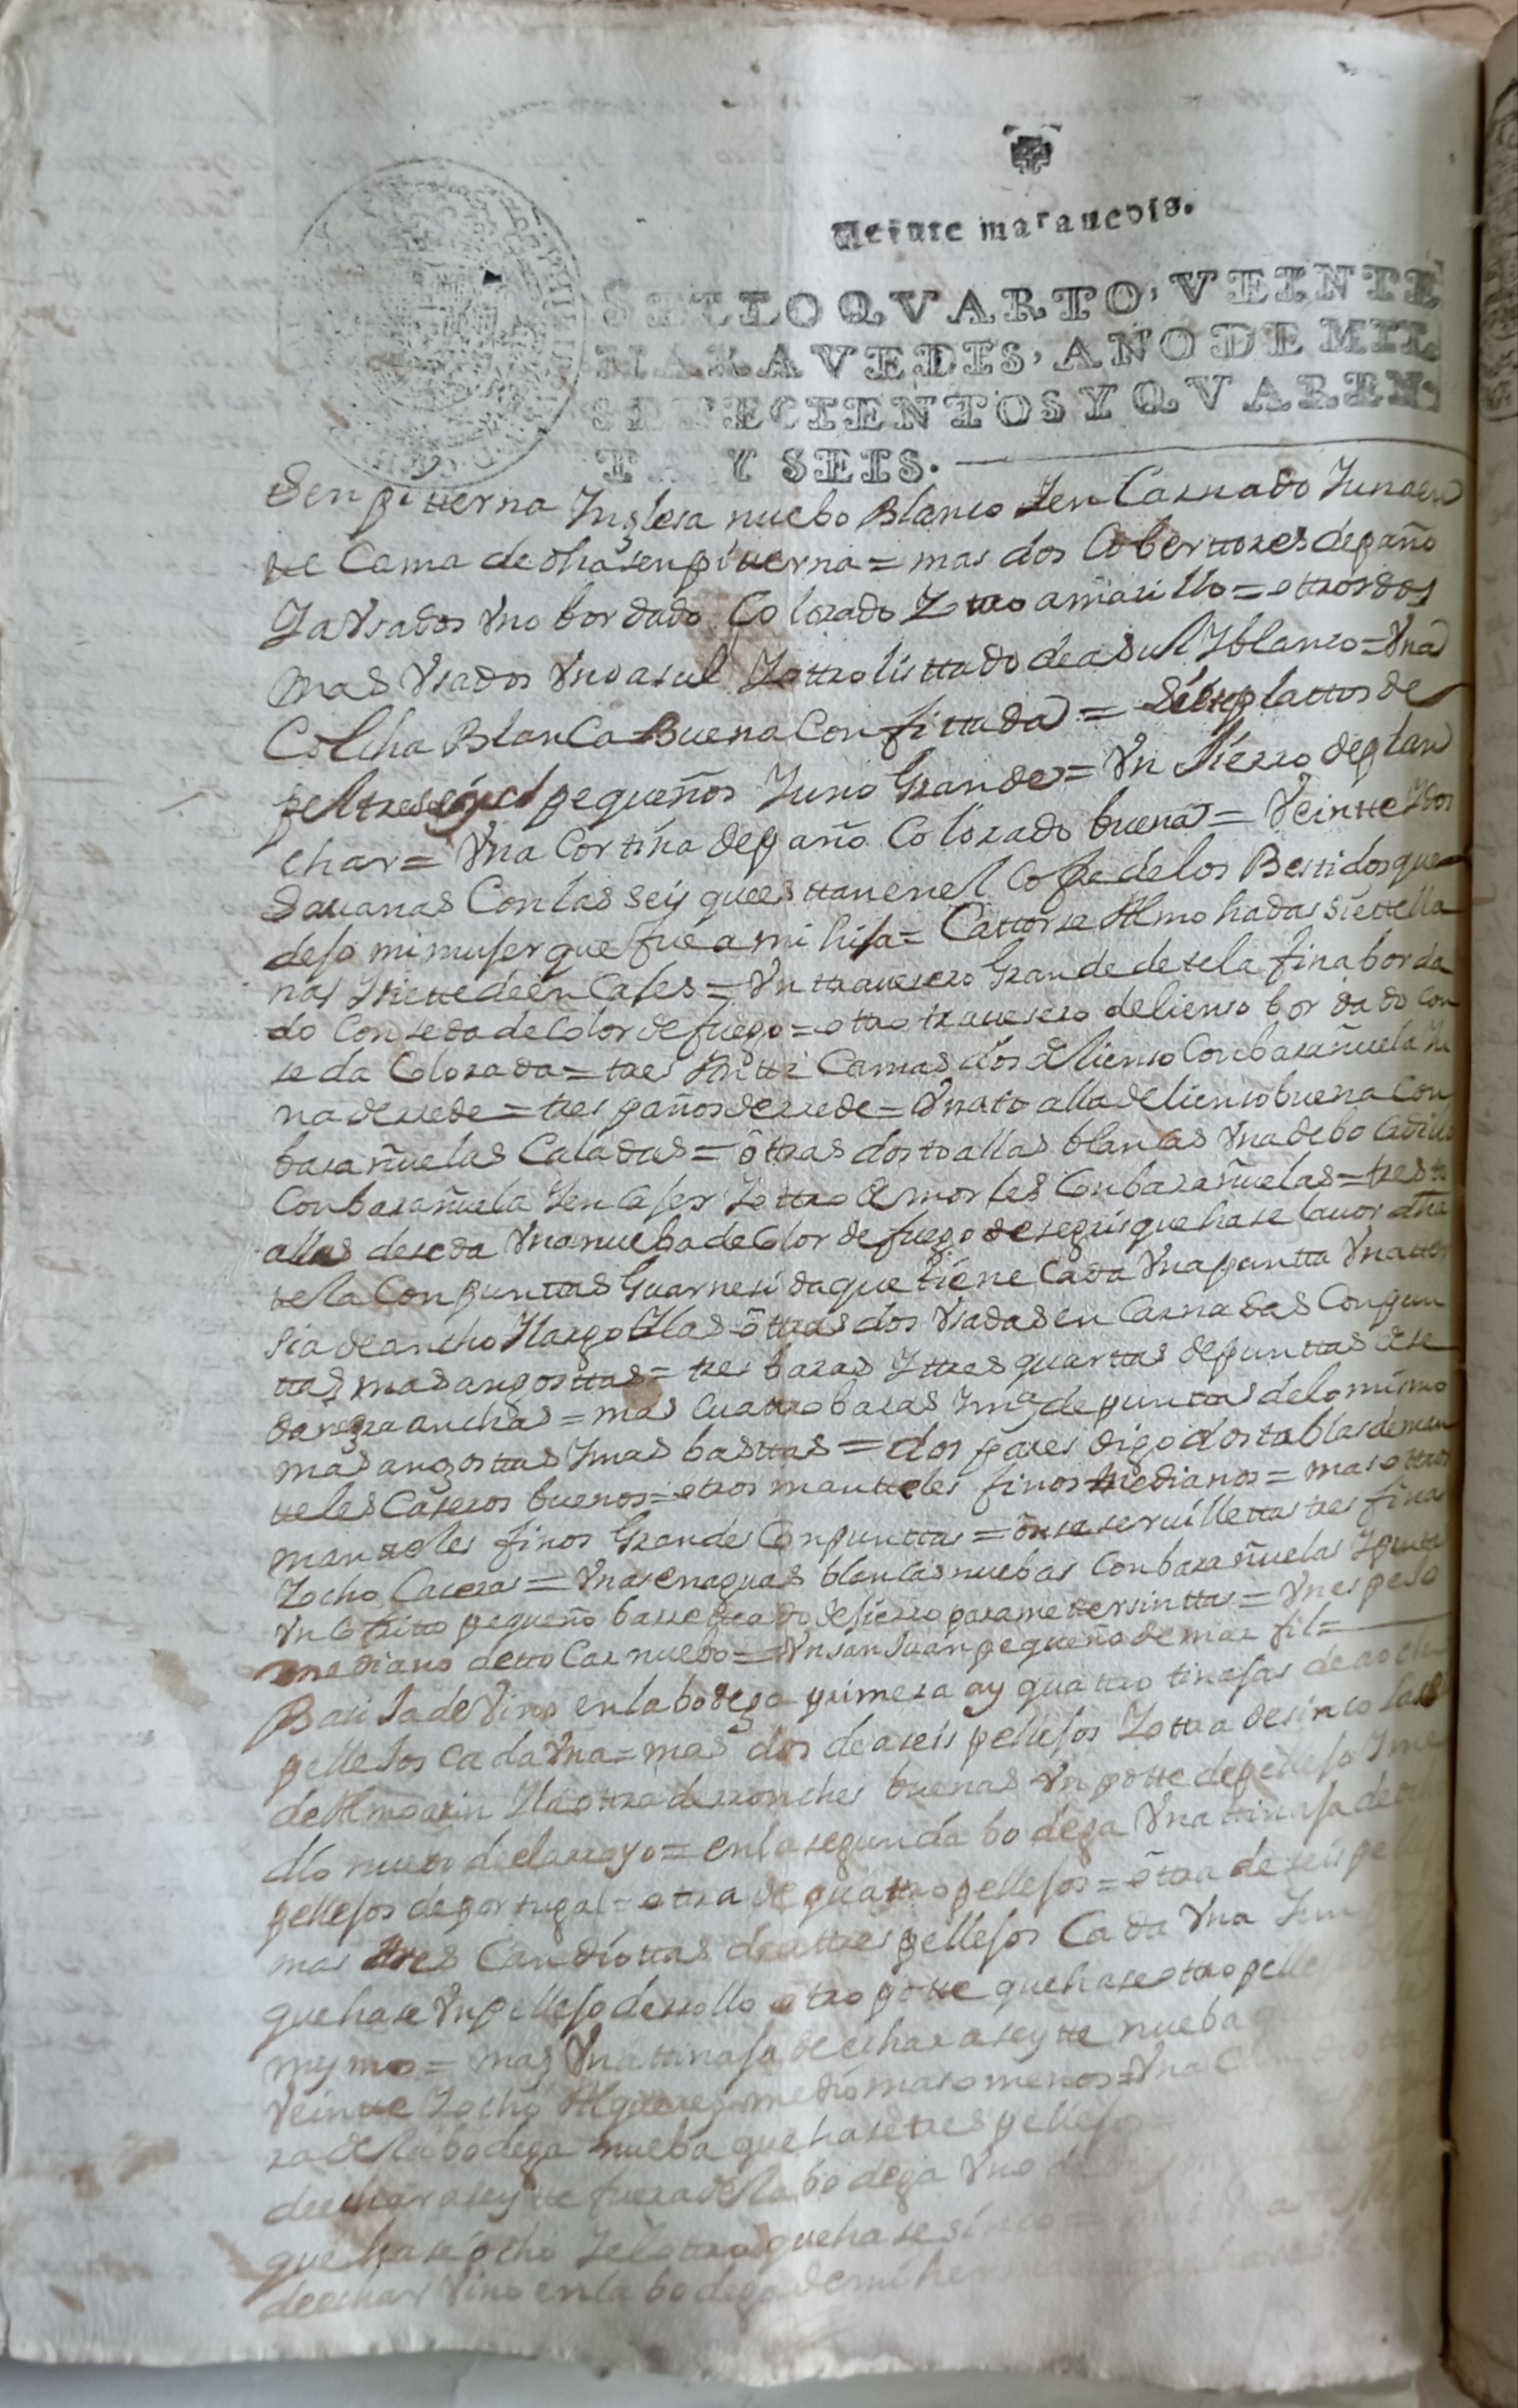 Veinte marauedis.
SELLO QVARTO, VEINTE
MARAVEDIS, AÑO DE MIL
SETECIENTOS Y QVAREN-
TA Y SEIS.
Senpiterna Inglesa nuebo Blanco Y en Carnado Y una
de Cama de otra senpiterna = mas dos Cobertores de paño
Ya Vsados Vno bordado Colorado Y otro amarillo = ottros dos
mas Vsados Vno asul Y ottro listtado de asul Y blanco = Vna
Colcha Blanca Buena Confittada = Siette plattos de
peltre seys pequeños Y uno Grande = Vn hierro de plan
char = Vna Cortina de paño Colorado buena = Veintte Y dos
Sauanas Con las seys que esttan en el Cofre de los Bestidos que
dejo mi mujer que fue a mi hija = Cattorse Almohadas siette lla
nas Y siette de en Cajes = Vn trauesero Grande de tela fina borda
do Con seda de Color de fuego = otro trauesero de lienso bordado con
seda Colorada = tres Camas dos de lienso Con barañuela Y u
na de rrede = tres paños de rrede = Vna toalla de lienso buena Con
barañuelas Caladas = ôtras dos toallas blancas Vna de bocadillo
Con barañuela Y en Cajes Y ottra de morles Con barañuelas = tres to
allas de seda Vna nueba de Color de fuego
tela Con punttas Guarnesida que tiene Cada Vna puntta Vna ter
sia de ancho Y largo Y las ôttras dos Vsadas en Carnadas Con pun
ttas mas angosttas = tres baras Y ttres quarttas de punttas de se
da negra anchas = mas cuattro baras Y mª de punttas de lo mismo
mas angosttas Y mas basttas = dos pares digo dos tablas de man
teles Caseros buenos = otros mantteles finos medianos = mas ottros
manteles finos Grandes Con punttas = ônse seruillettas tres finas
Y ocho Caseras = Vnas enaguas blancas nuebas Con barañuelas Y puntta
Vn Cofrito pequeño barretteado de hierro para metter sinttas = Vn espejo
mediano de ttocar nuebo = Vn San Juan pequeño de marfil =
Basija de Vino en la bodega primera ay quattro tinajas de a ocho
pellejos Cada Vna = mas dos de a seis pellejos Y ottra de sinco
de Almoarin Y la ottra de rronches buenas Vn potte de pellejo Y me
dio nuebo del arroyo = en la segunda bodega Vna ttinaja de ocho
pellejos de portugal = otra de quattro pellejos = ôtra de seis pe
mas tres Candiottas de a ttres pellejos Cada Vna Y un
que hase Vn pellejo de rrollo otro potte que hase otro pellejo
mysmo = mas Vna ttinaja de echar aseytte nueba
Veintte Y ocho Alqueres Y medio mas o menos = Vna
ra de la bodega nueba que hase tres pellejos
de echar aseytte fuera de la bodega Vno
que hase ocho Y el ottro que hase sinco =
de echar Vino en la bodega de mi hermano